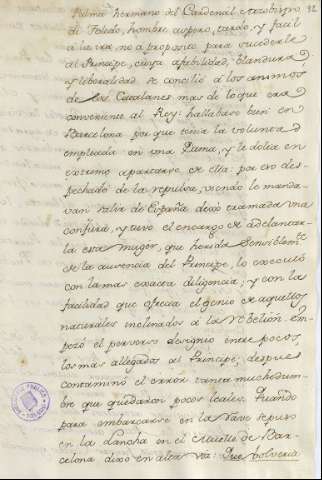 Palma hermano del Cardenál Arzobispo 92
de Toledo, hombre aspero, tardo, y facil
à la ira, no à proposito para sucederle
al Principe, cuya afabilidad, blandura,
y liberalidad se concilió à los animos
de los Catalanes mas de lo que era
conveniente al Rey: hallabase bien en
Barcelona por que tenia la voluntad
empleada en una Dama, y le dolia en
extremo apartarse de ella: por eso des-
pechado de la repulsa, viendo le manda-
van salir de España dexò tramada una
conjura, y tuvo el encargo de adelantar
la esta muger, que herida sensiblemte.
de la ausencia del Principe, lo executó
con la mas exacta diligencia; y con la
facilidad que ofrecia el genio de aquellos
naturales inclinados à la rebelion em-
pezó el perverso designio entre pocos,
los mas allegados al Principe; despues
contaminó el error tanta muchedum-
bre que quedaron pocos leales. Quando
para embarcarse en la Nave se puso
en la Lancha en el Muelle de Bar-
celona dixo en alta voz: Que bolveria